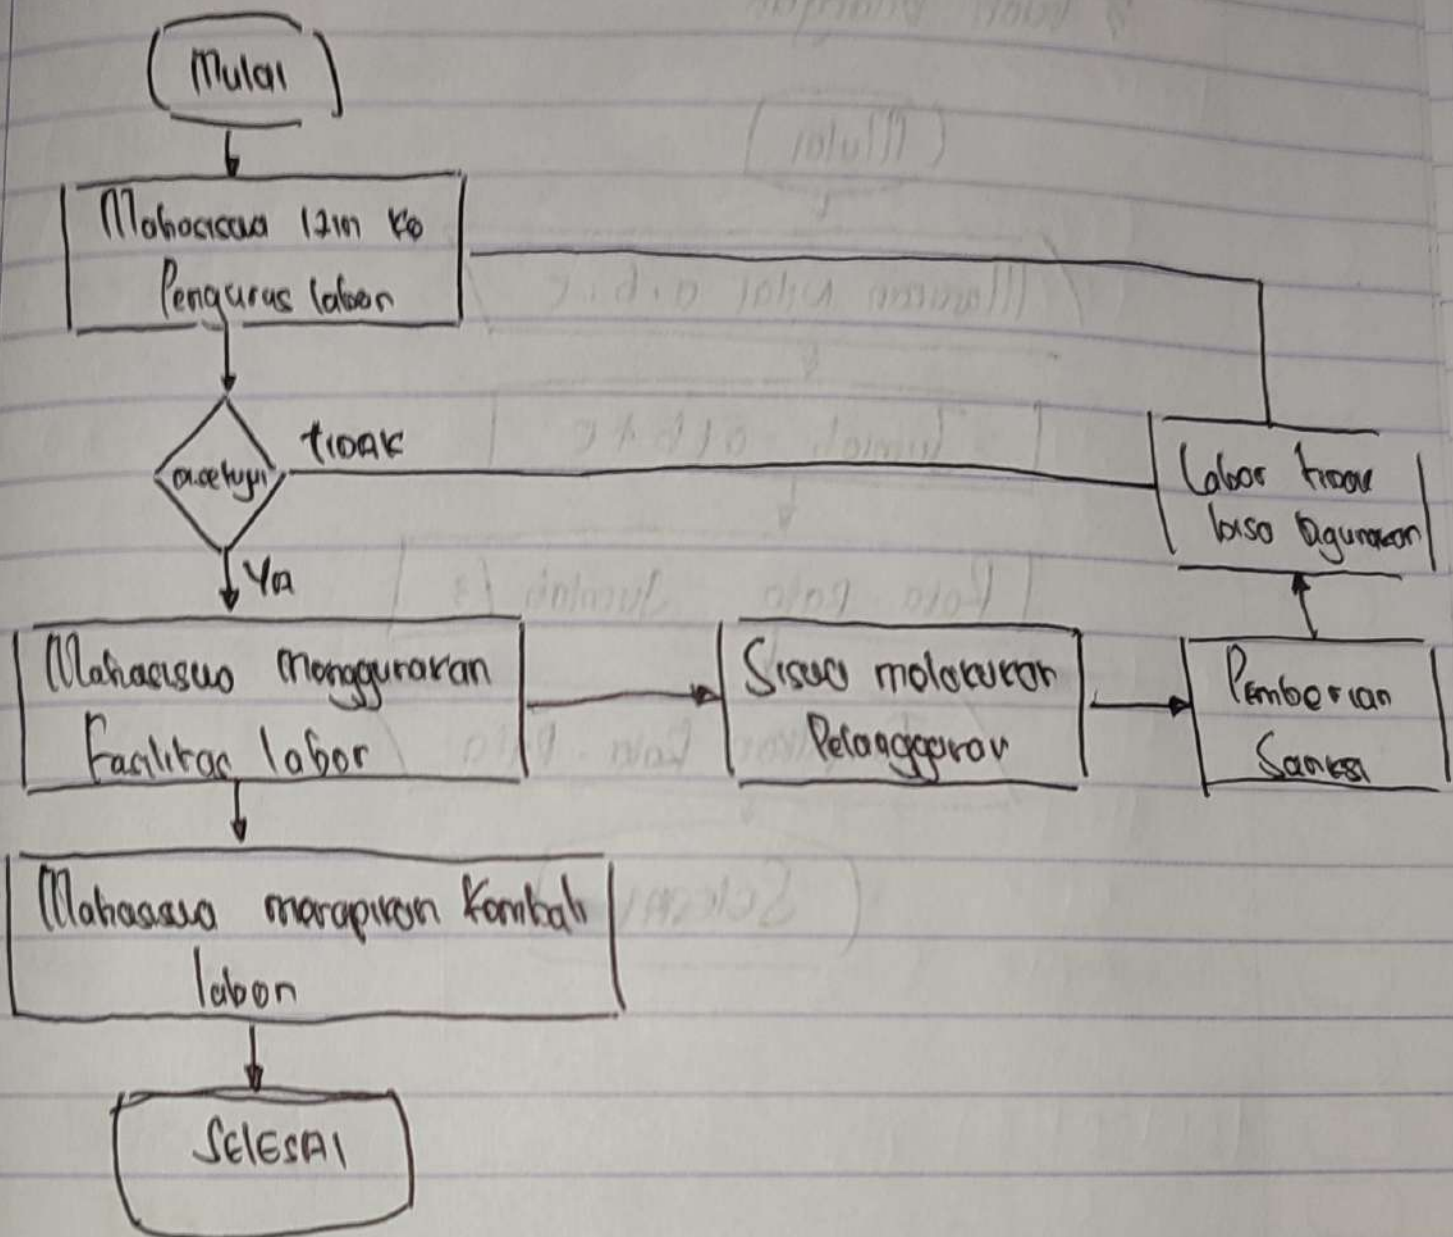 Mulai
Mahasiswa izin ke
Pengurus labor
disetujui
tidak
Ya
Labor tidak
bisa digunakan
Mahasiswa menggunakan
Fasilitas labor
Siswa melakukan
Pelanggaran
Pemberian
Sanksi
Mahasiswa merapikan kembali
labor
SELESAI